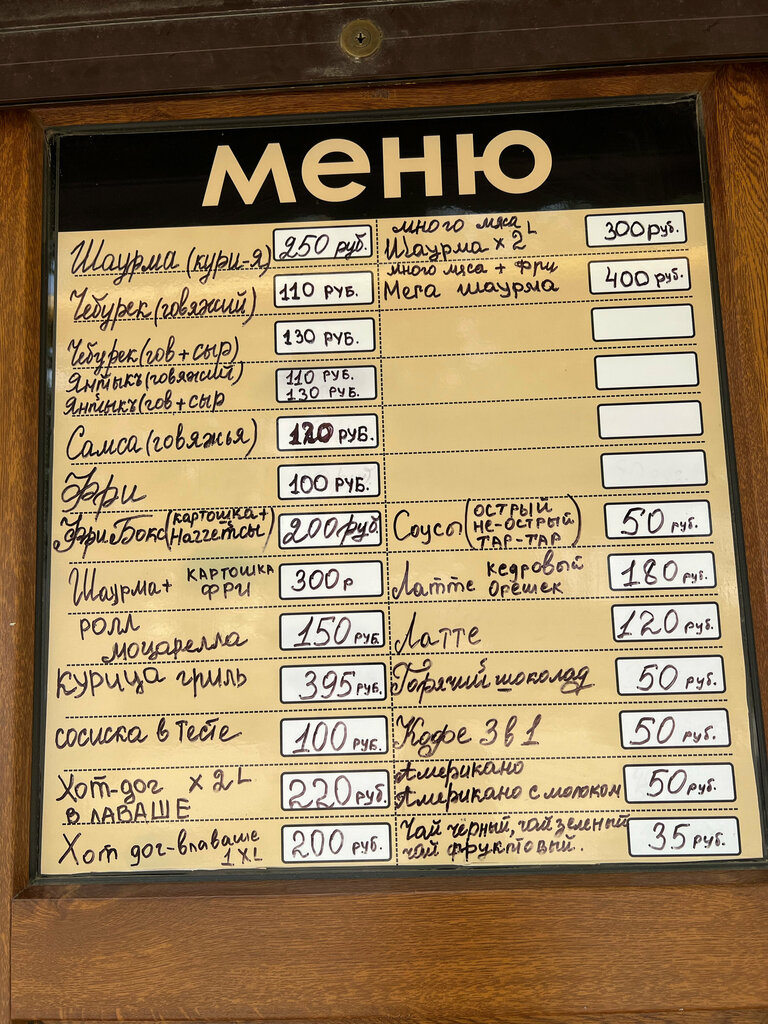 меню
Шаурма (кури-я) 250 руб.
Чебурек (говяжий) 110 РУБ.
Чебурек (гов + сыр) 130 РУБ.
Янтыкъ (говяжий) 110 РУБ.
Янтыкъ (гов + сыр 130 РУБ.
Самса (говяжья) 120 РУБ.
Фри 100 РУБ.
Фри Бокс (картошка + наггетсы) 200 руб
Шаурма + КАРТОШКА ФРИ 300 р
РОЛЛ
моцарелла 150 РУБ.
Курица гриль 395 РУБ.
сосиска в тесте 100 РУБ.
Хот-дог x 2L
В ЛАВАШЕ 220 руб.
Хот дог-влаваше
1 XL 200 РУБ.
много мяса
Шаурма x 2L 300 руб.
много мяса + фри
Мега шаурма 400 руб.
Соусы (ОСТРЫЙ
НЕ-ОСТРЫЙ
ТАР-ТАР) 50 РУБ.
Латте кедровый
орешек 180 РУБ.
Латте 120 РУБ.
Горячий шоколад 50 РУБ.
Кофе 3 в 1 50 РУБ.
Американо
Американо с молоком 50 РУБ.
Чай чёрный, чай зеленый
чай фруктовый. 35 РУБ.